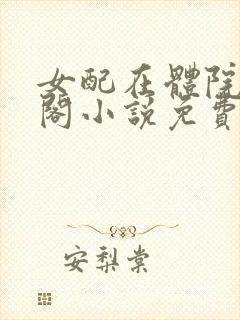 女配在體院
閣小説免費
安梨棠